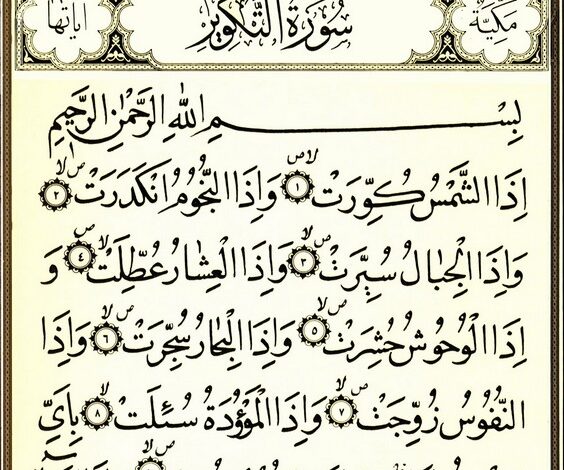 مكية سورة التكوير آياتها
بِسْمِ اللّٰهِ الرَّحْمٰنِ الرَّحِيمِ
إِذَا الشَّمْسُ كُوِّرَتْ ۝١ وَإِذَا النُّجُومُ انْكَدَرَتْ ۝٢
وَإِذَا الْجِبَالُ سُيِّرَتْ ۝٣ وَإِذَا الْعِشَارُ عُطِّلَتْ ۝٤ وَ
إِذَا الْوُحُوشُ حُشِرَتْ ۝٥ وَإِذَا الْبِحَارُ سُجِّرَتْ ۝٦ وَإِذَا
النُّفُوسُ زُوِّجَتْ ۝٧ وَإِذَا الْمَوْؤُدَةُ سُئِلَتْ ۝٨ بِأَيِّ